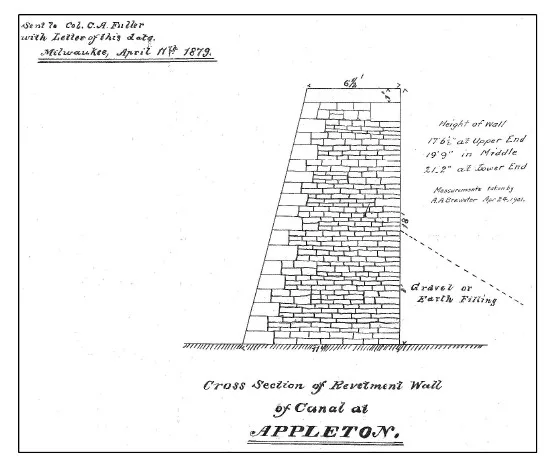 Sent To Col. C. A. Fuller
with Letter of this date.
Milwaukee, April 11th 1879.
6½'
3'
Height of Wall
17'6½" at Upper End
19'9" in Middle
21'.2" at Lower End
Measurements taken by
A.A. Brewster Apr 24, 1901.
18'
Gravel or
Earth Filling
11½'
Cross Section of Revetment Wall
of Canal at
APPLETON.